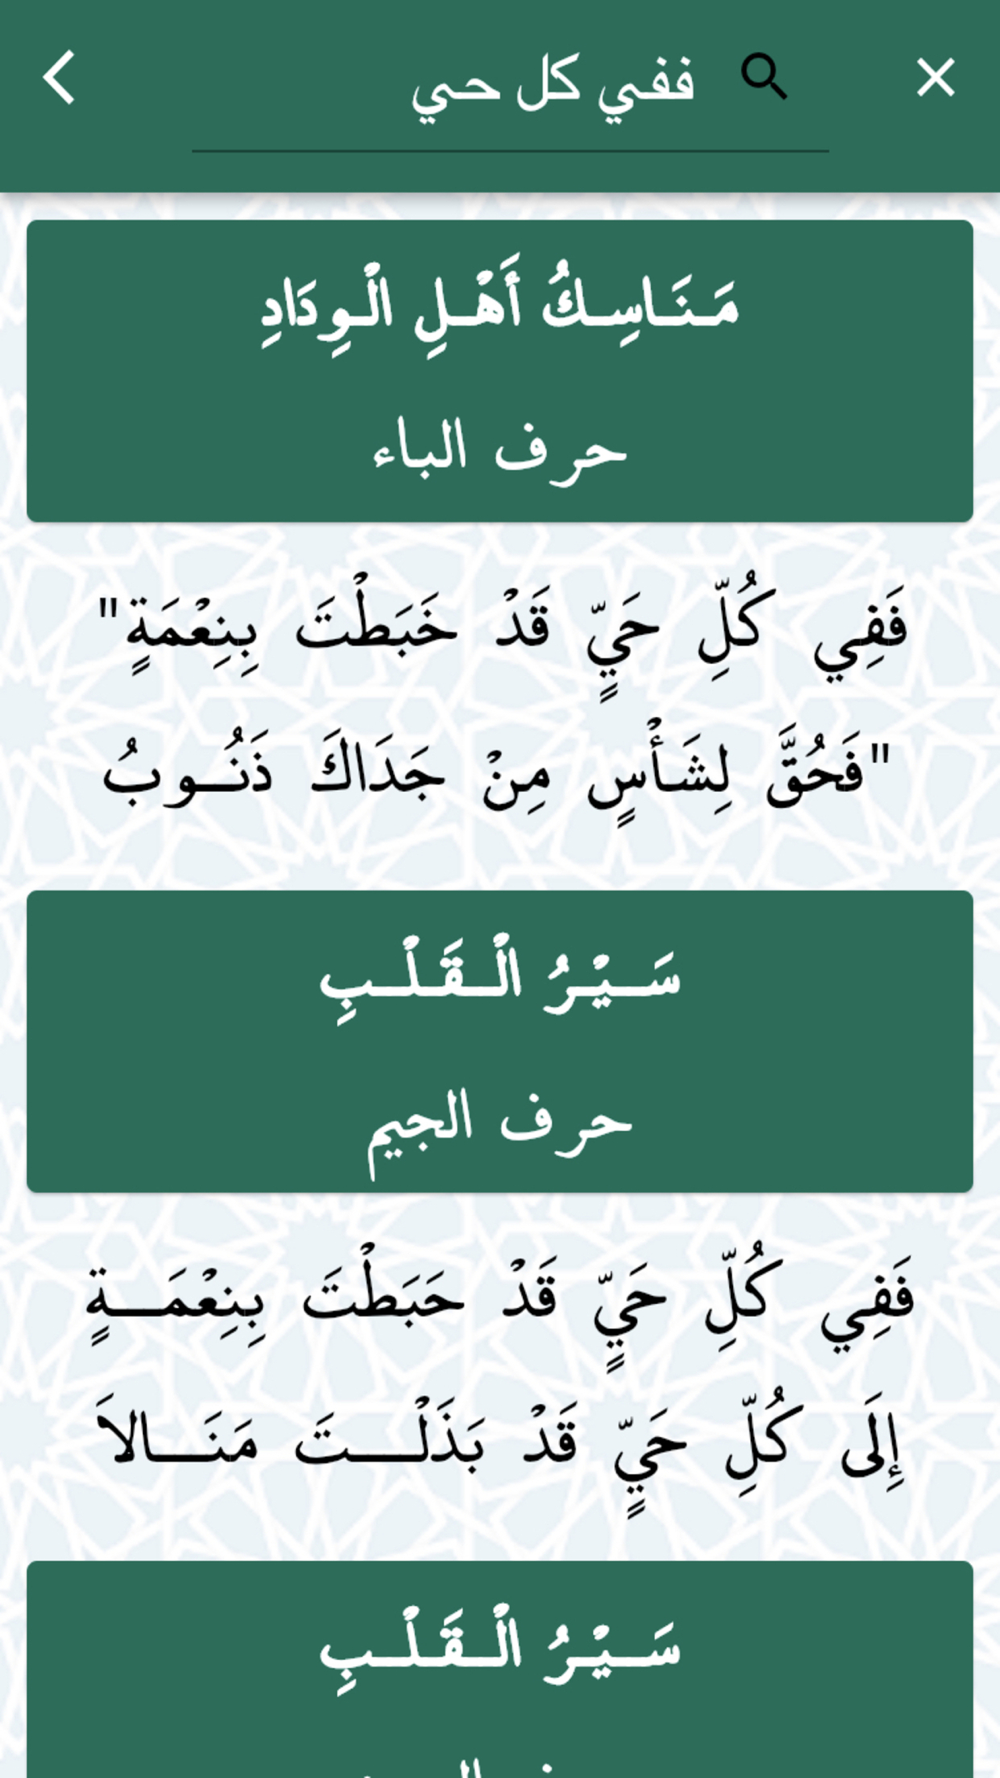 ففي كل حي
مَنَاسِكُ أَهْلِ الْوِدَادِ
حرف الباء
فَفِي كُلِّ حَيٍّ قَدْ خَبَطْتَ بِنِعْمَةٍ"
"فَحُقَّ لِشَأْسٍ مِنْ جَدَاكَ ذَنُـوبُ
سَـيْرُ الْـقَـلْـبِ
حرف الجيم
فَفِي كُلِّ حَيٍّ قَدْ حَبَطْتَ بِنِعْمَـةٍ
إِلَى كُلِّ حَيٍّ قَدْ بَذَلْـتَ مَنَـالاَ
سَـيْرُ الْـقَـلْـبِ